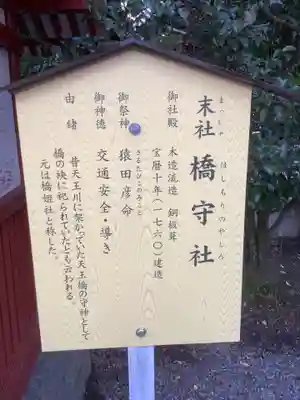 末社 橋守社
まっしゃ はしもりのやしろ
御社殿 木造流造 銅板葺
宝暦十年(一七六〇)建造
御祭神 猿田彦命
さるたひこのみこと
御神徳 交通安全・導き
由緒 昔天王川に架かっていた天王橋の守神として
橋の袂に祀られていたとも云われる。
元は橋姫社と称した。